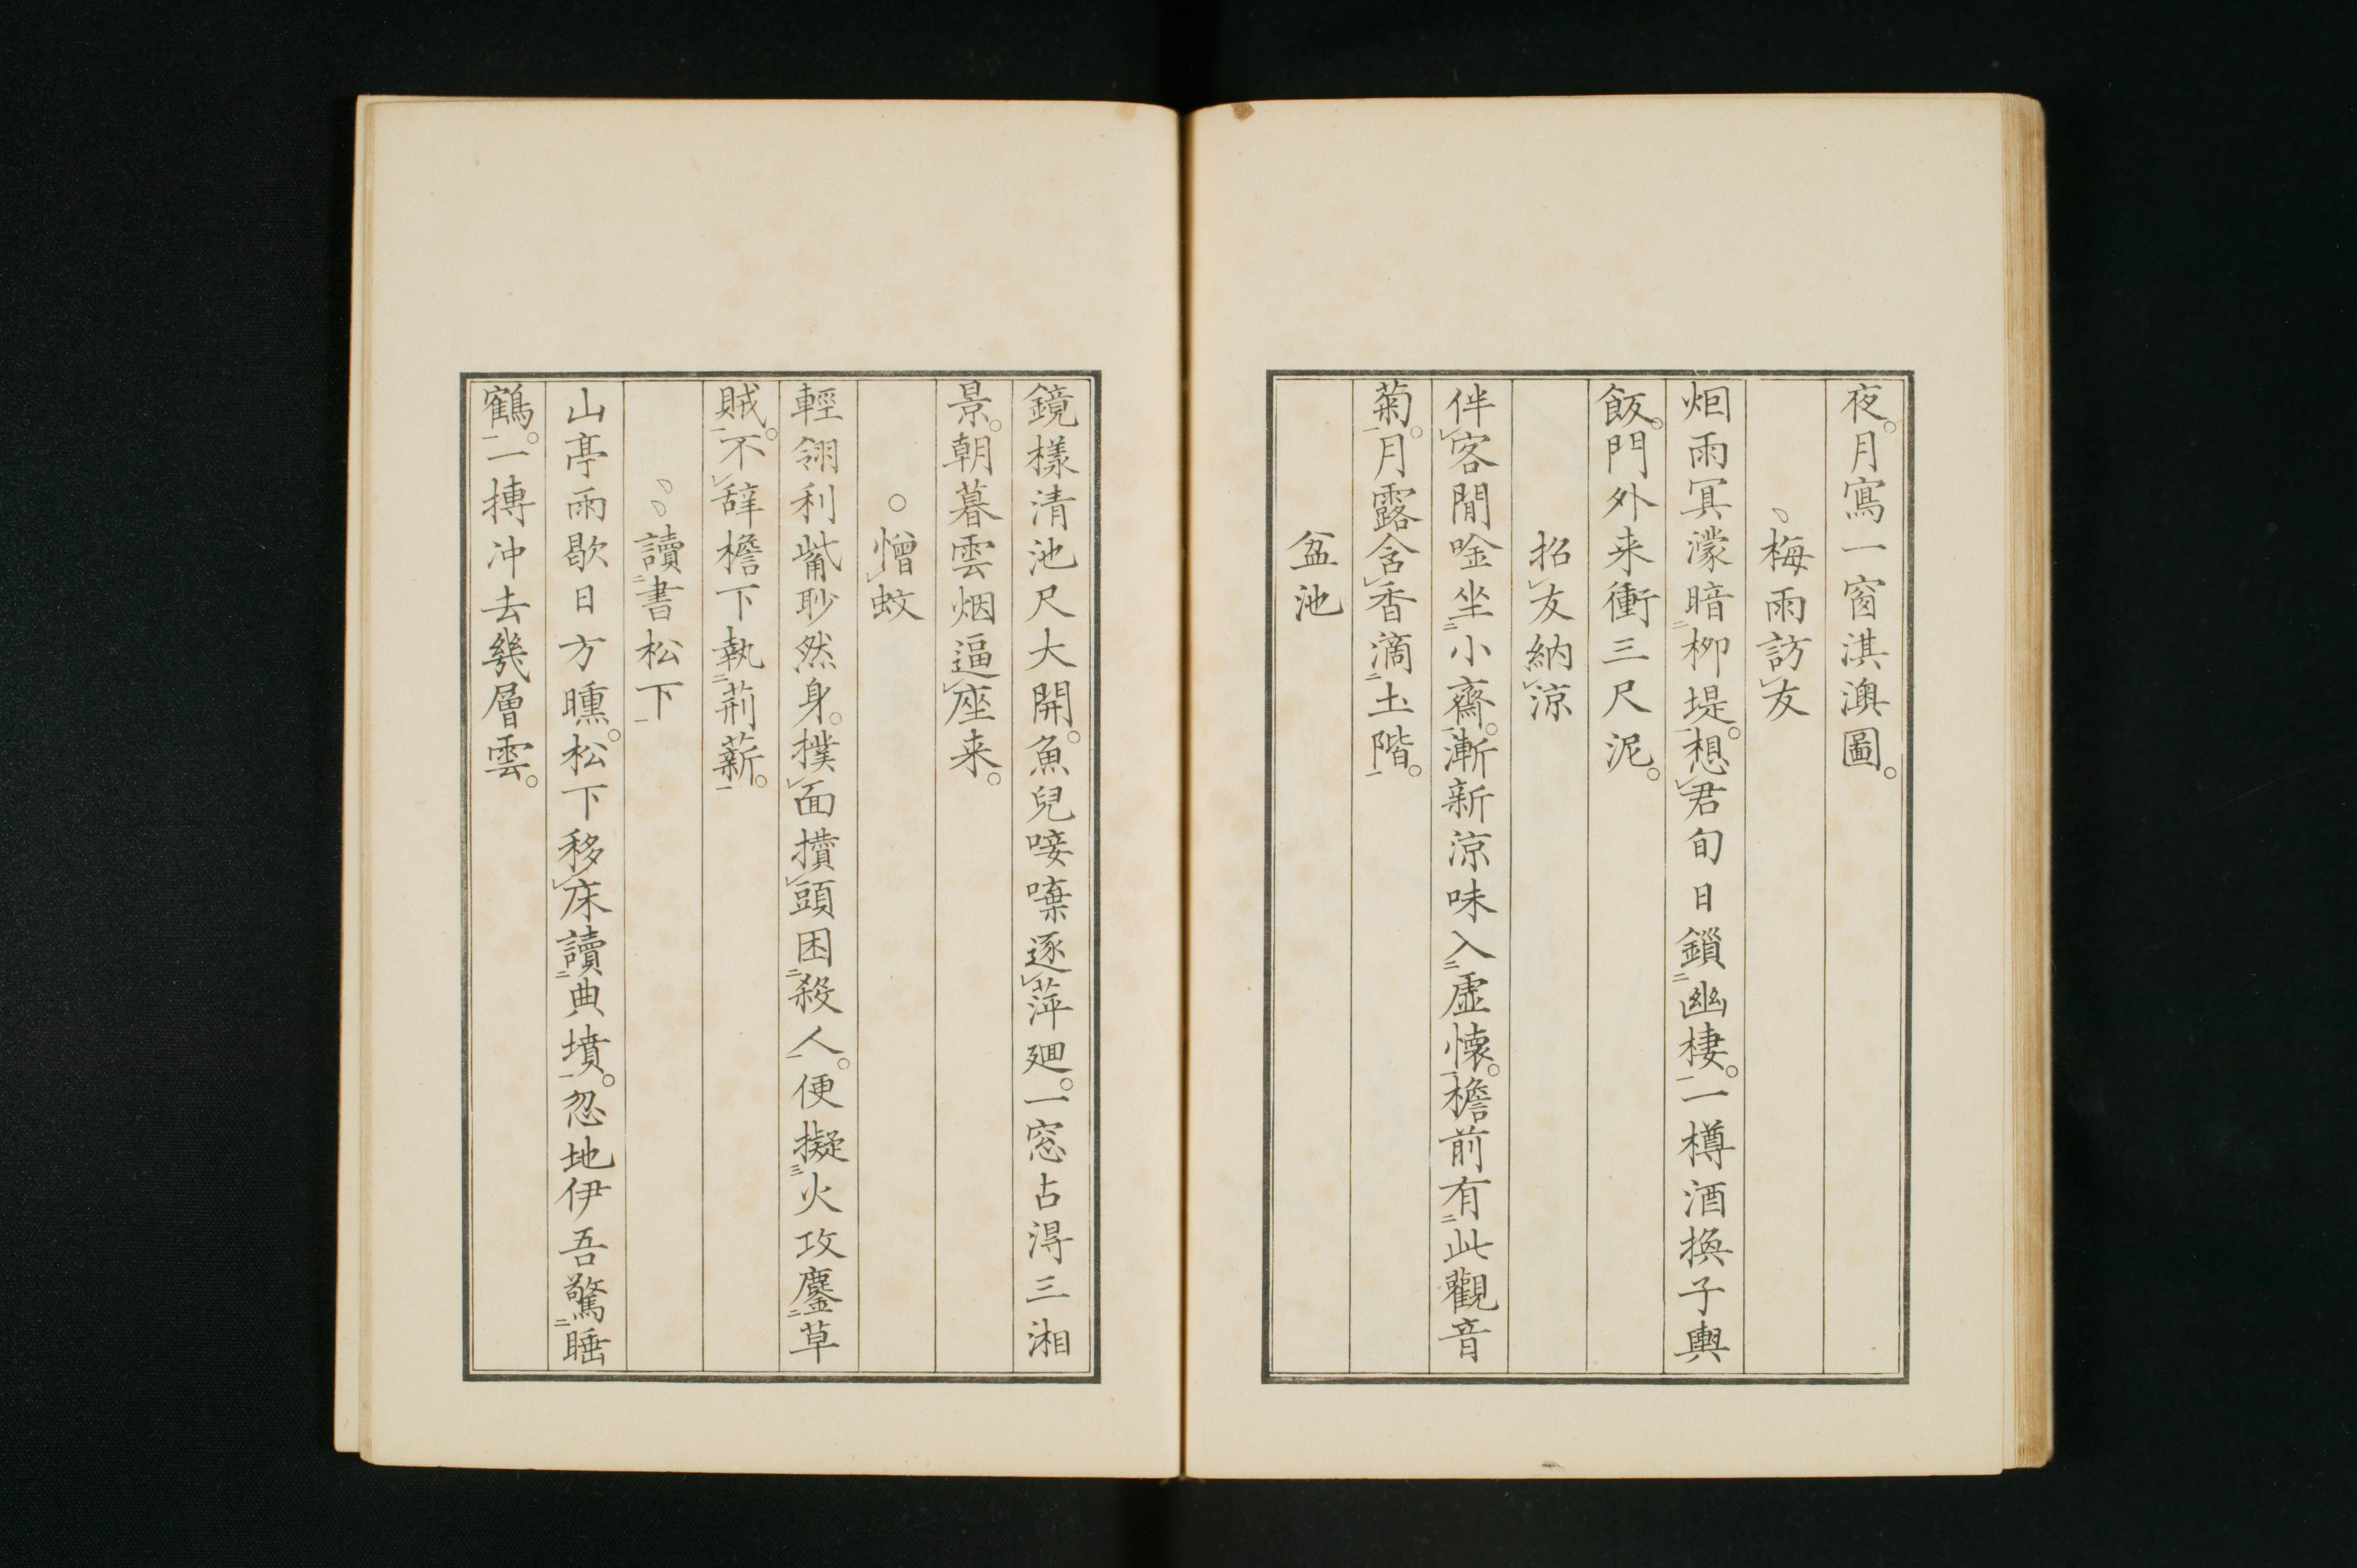 夜。月寫一窗淇澳圖。
梅雨訪㆑友
烟雨冥濛暗㆓柳堤㆒。想㆑君旬日鎖㆓幽棲㆒。一樽酒換子輿
飯。門外来衝三尺泥。
招㆑友納㆑涼
伴㆑客閒唫坐㆓小齋㆒。漸新涼味入㆓虛懐㆒。檐前有㆓此觀音
菊㆒。月露含㆑香滴㆓土階㆒。
盆池
鏡樣清池尺大開。魚兒唼㗱逐㆑萍廻。一窓占得三湘
景。朝暮雲烟逼㆑座来。
○憎㆑蚊
輕翎利觜眇然身。撲㆑面攢㆑頭困㆓殺人㆒。便擬㆔火攻鏖㆓草
賊㆒。不㆑辞檐下執㆓荊薪㆒。
讀㆓書松下㆒
山亭雨歇日方曛。松下移㆑床讀㆓典墳㆒。忽地伊吾驚㆓睡
鶴㆒。一摶冲去幾層雲。